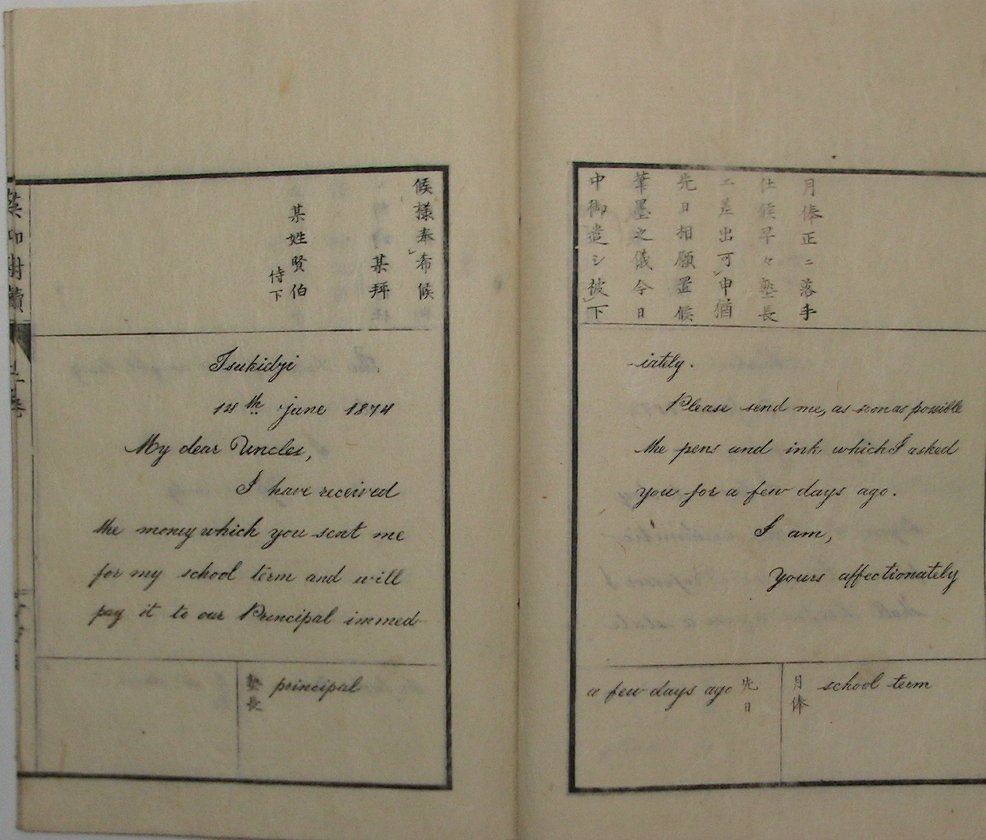 月俸正ニ落手
仕候早々塾長
ニ差出可申猶
先日相願置候
筆墨之儀今日
中御遣シ被下
候様奉希候
某拜
某姓賢伯
侍下
Tsukidji
12th june 1874
My dear Uncles,
I have received
the money which you sent me
for my school term and will
pay it to our Principal immed-
-iately.
Please send me, as soon as possible
the pens and ink which I asked
you for a few days ago.
I am,
yours affectionately
塾長 principal
a few days ago 先日
月俸 school term